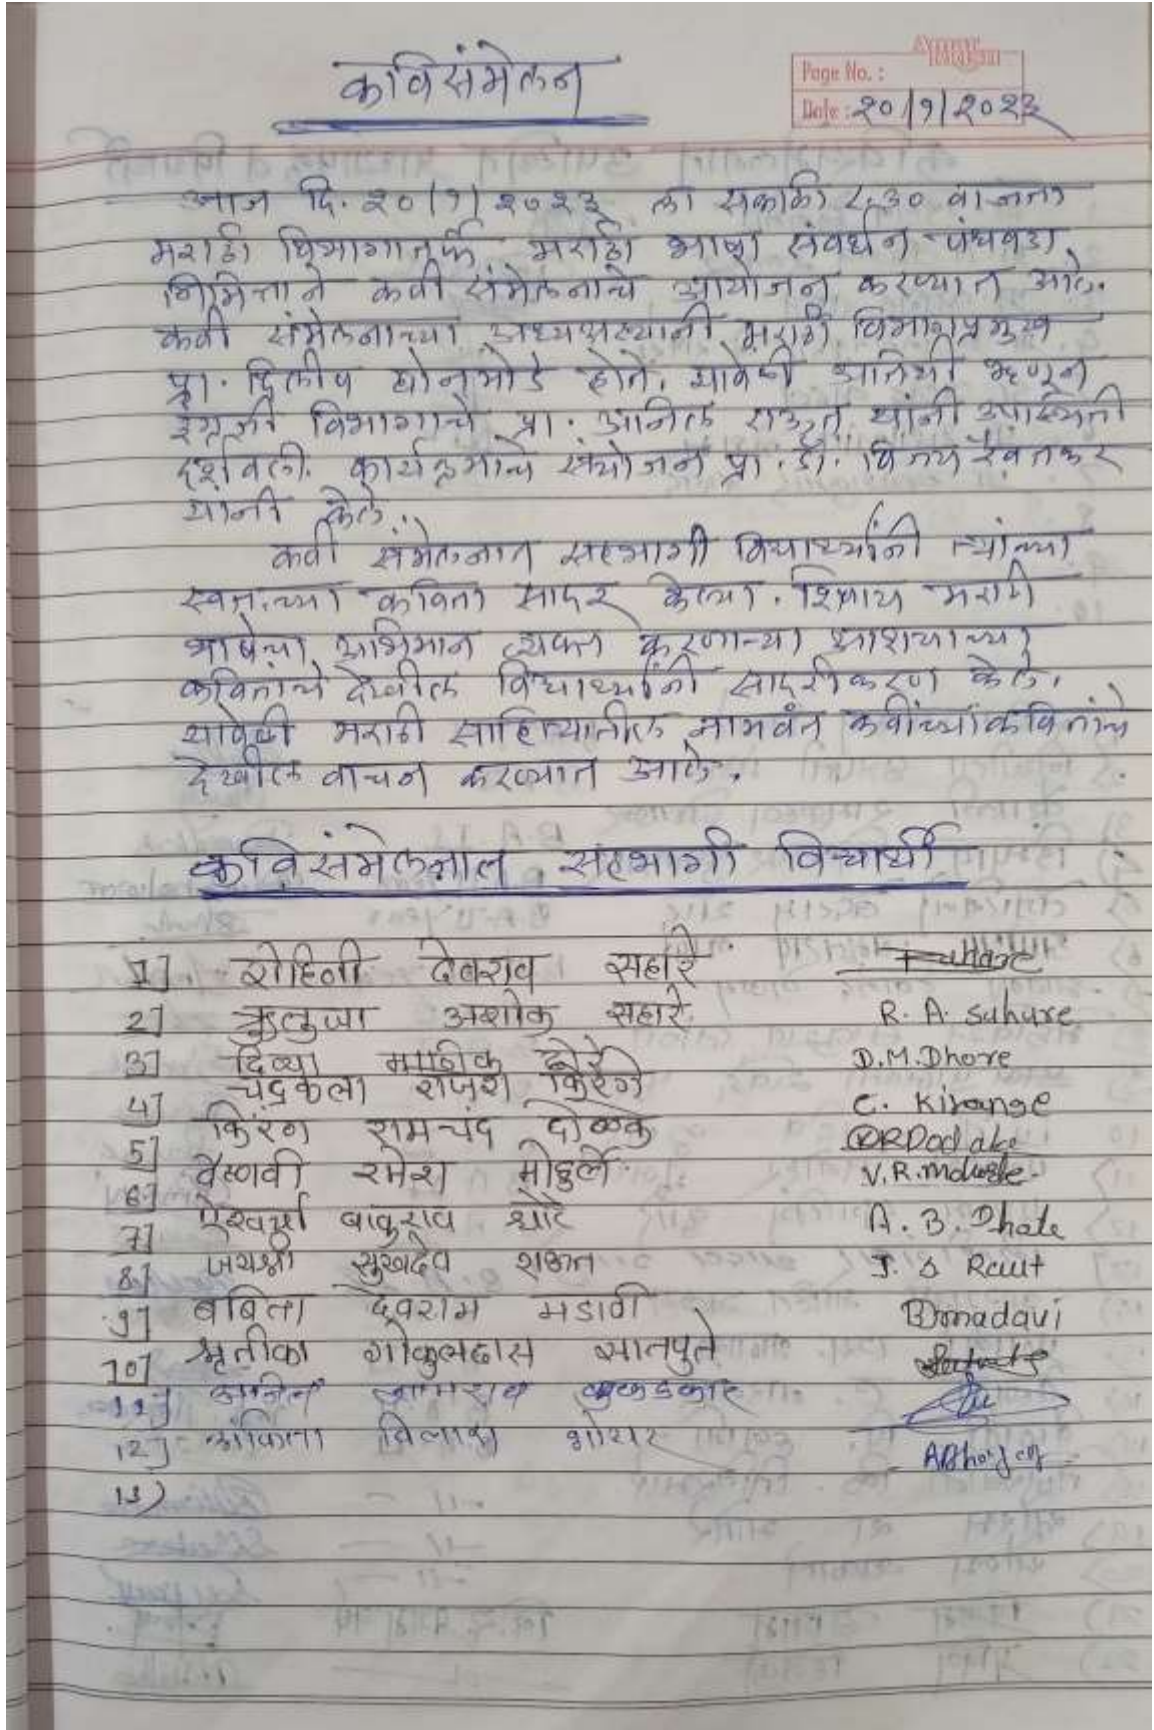 कविसंमेलन
Page No. :
Date : २०/१/२०२३
आज दि. २०/१/२०२३ ला सकाळी ८.३० वाजता
मराठी विभागातर्फे मराठी भाषा संवर्धन पंधरवडा
निमित्ताने कवी संमेलनाचे आयोजन करण्यात आले.
कवी संमेलनाच्या अध्यक्षस्थानी मराठी विभागप्रमुख
प्रा. दिलीप होते. यावेळी अतिथी म्हणून
इंग्रजी विभागाचे प्रा. अनिल राऊत यांनी उपस्थिती
दर्शवली. कार्यक्रमाचे संयोजन प्रा. डॉ. विजय रैवतकर
यांनी केले.
कवी संमेलनात सहभागी विद्यार्थ्यांनी त्यांच्या
स्वतःच्या कविता सादर केल्या. शिवाय मराठी
भाषेचा अभिमान व्यक्त करणाऱ्या आशयाच्या
कवितांचे देखील विद्यार्थ्यांनी सादरीकरण केले.
यावेळी मराठी साहित्यातील नामवंत कवींच्या कवितांचे
देखील वाचन करण्यात आले.
कविसंमेलनात सहभागी विद्यार्थी
1] रोहिणी देवराव सहारे
2] ऋतुजा अशोक सहारे R. A. Sahare
3] दिव्या माणीक ढोरे D.M.Dhore
4] चंद्रकला राजेश किरंगे C. Kirange
5] किरण रामचंद्र दोडके RDodake
6] वैष्णवी रमेश मोहुर्ले V.R.Mohurle
7] ऐश्वर्या बाबुराव धोटे A. B. Dhote
8] जयश्री सुखदेव राऊत J. S Raut
9] बबिता देवराम मडावी Bmadavi
10] गोकुलदास सातपुते
11]
12] अंकिता विलास भोयर ABhoyar
13)